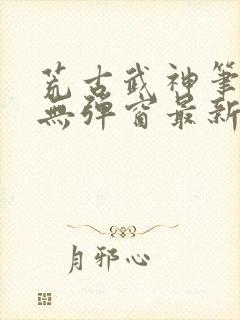 荒古武神筆
無彈窗最新
月邪心